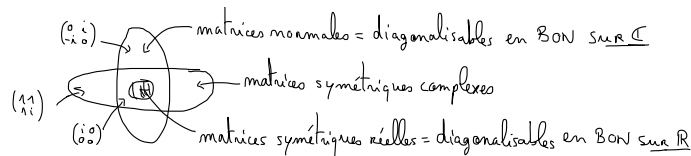 (0 i
-i 0)
matrices normales = diagonalisables en BON sur ℂ
matrices symétriques complexes
(1 1
1 i)
(i 0
0 0)
matrices symétriques réelles = diagonalisables en BON sur ℝ